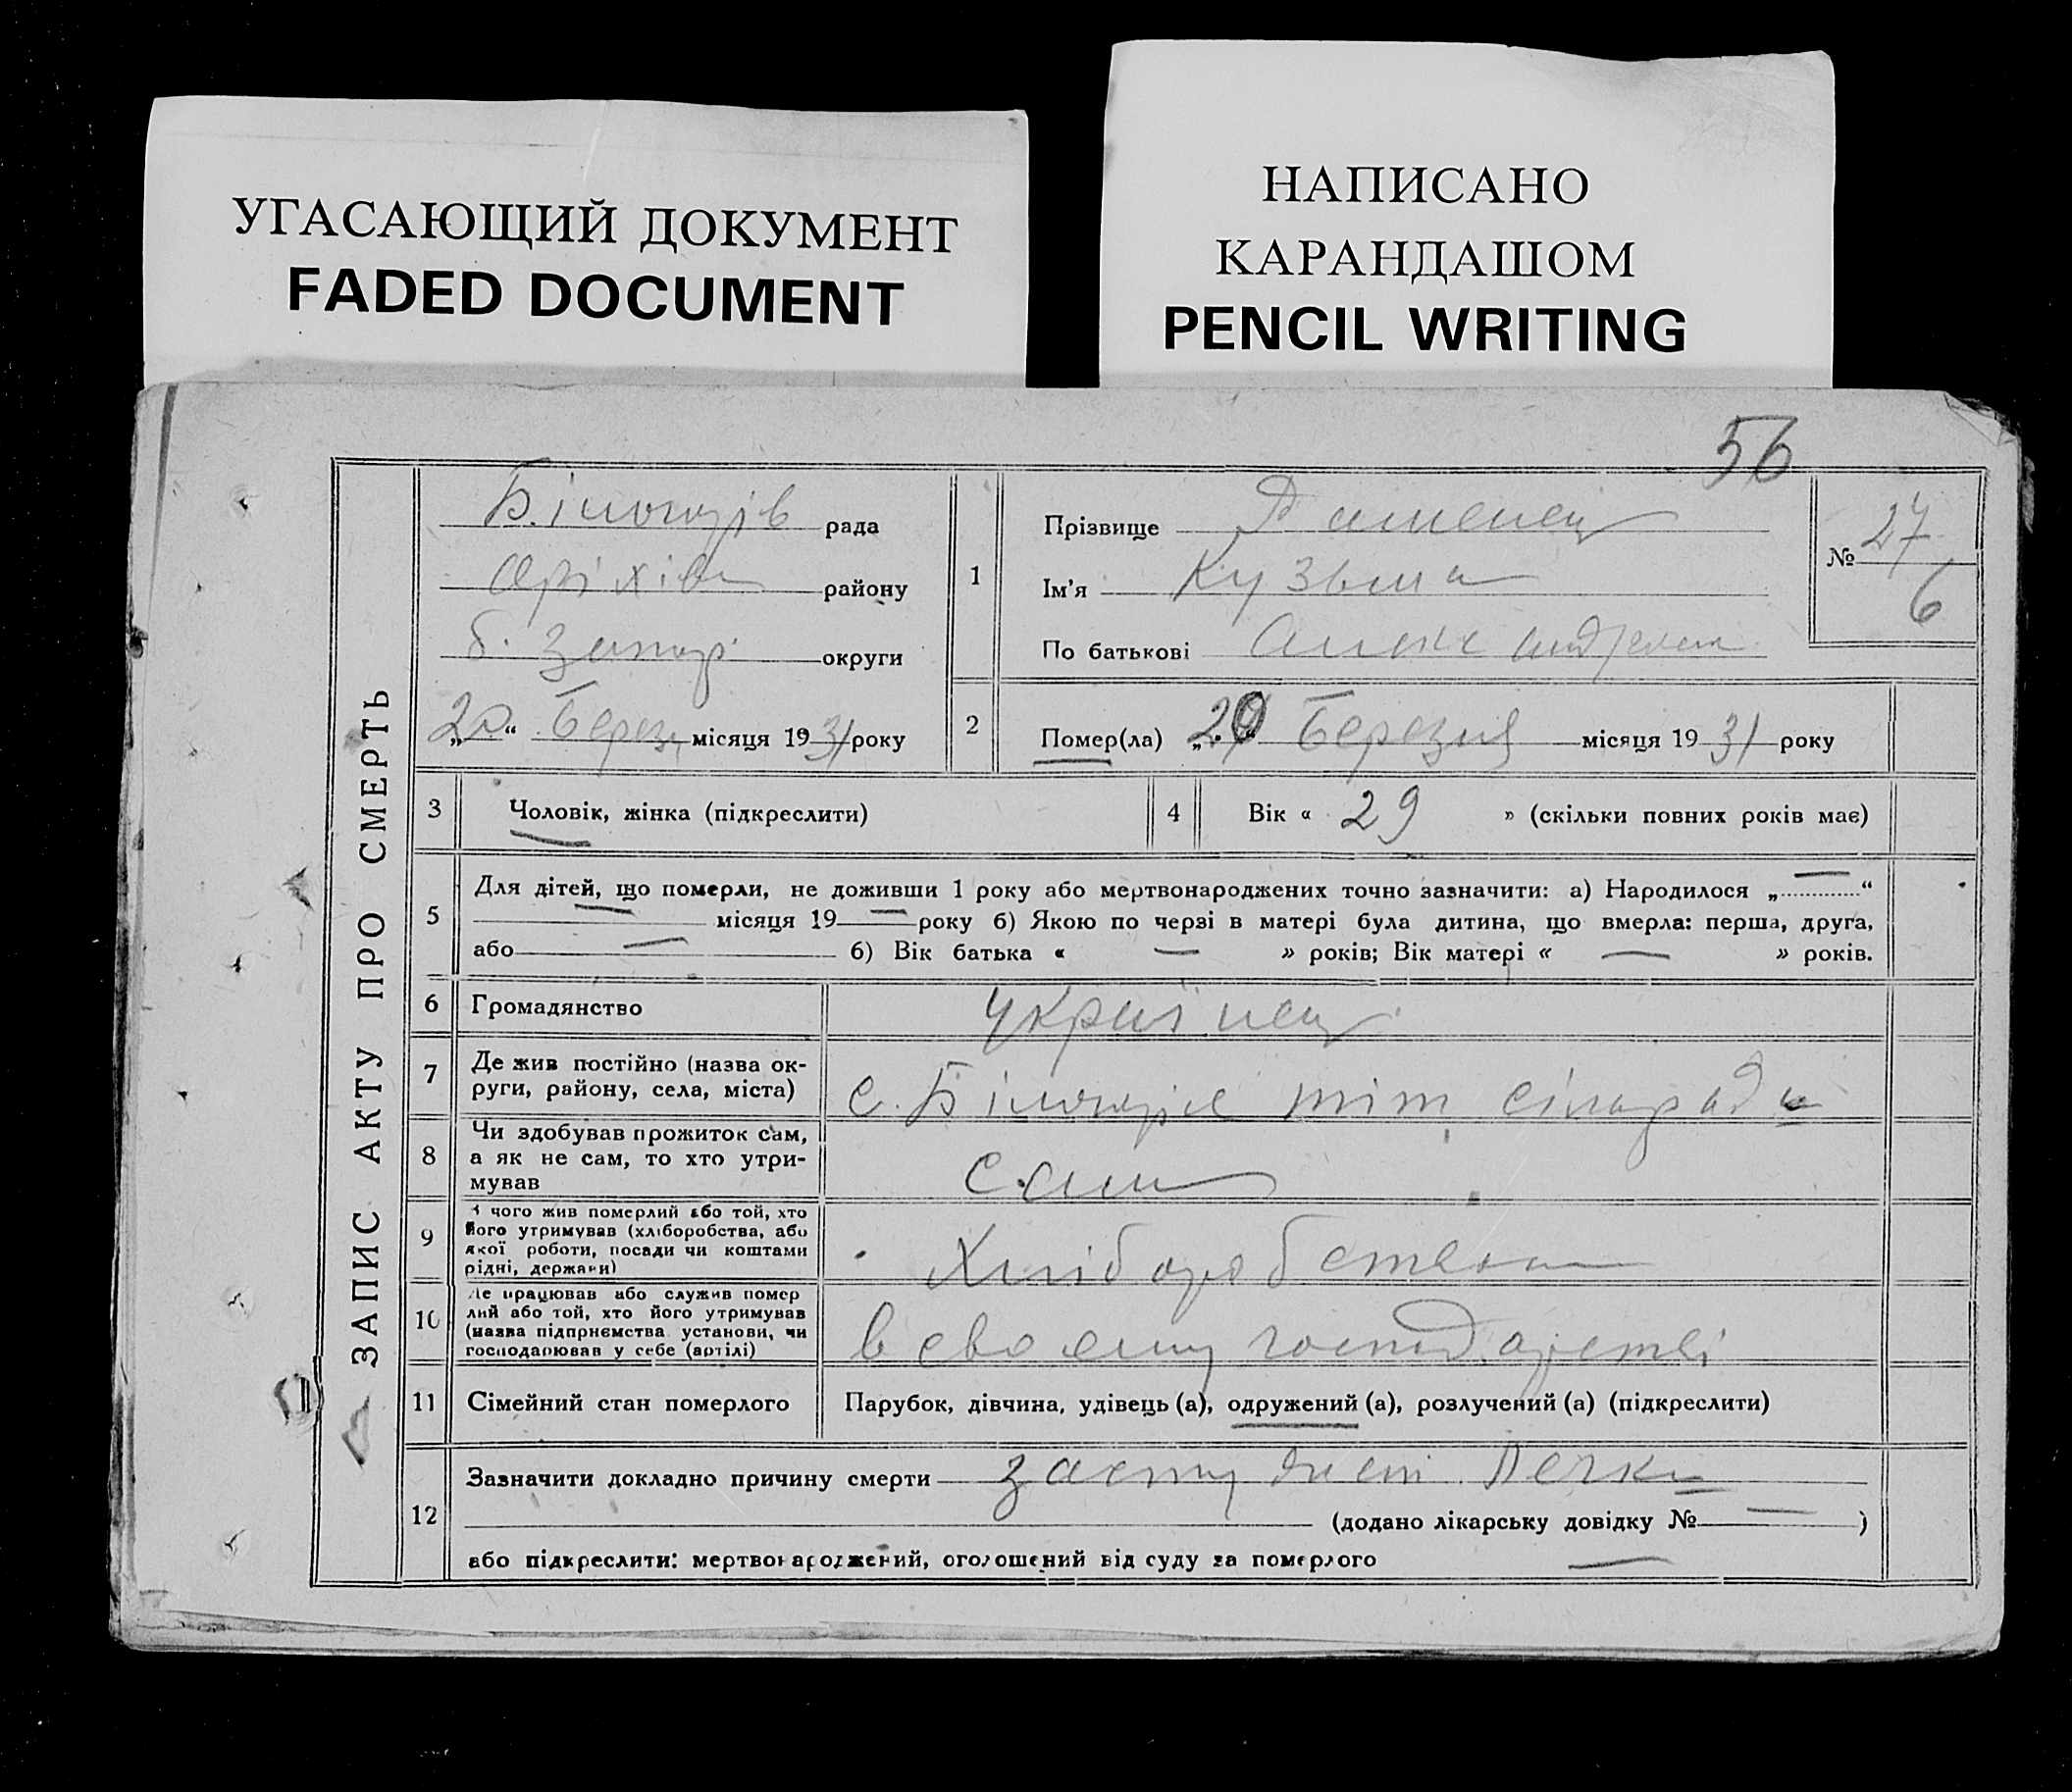 УГАСАЮЩИЙ ДОКУМЕНТ
FADED DOCUMENT
НАПИСАНО
КАРАНДАШОМ
PENCIL WRITING
56
ЗАПИС АКТУ ПРО СМЕРТЬ
Білогорів рада
Оріхів району
б. Запор. округи
„20“ Берез. місяця 1931 року
1
Прізвище
Ім'я Кузьма
По батькові Александрович
№ 27
6
2
Помер(ла) „20“ Березня місяця 1931 року
3 Чоловік, жінка (підкреслити)
4 Вік « 29 » (скільки повних років має)
5
Для дітей, що померли, не доживши 1 року або мертвонароджених точно зазначити: а) Народилося „—“
— місяця 19— року б) Якою по черзі в матері була дитина, що вмерла: перша, друга,
або — б) Вік батька « — » років; Вік матері « — » років.
6 Громадянство Українец
7
Де жив постійно (назва ок-
руги, району, села, міста)
с. Білогорїе тіт сілради
8
Чи здобував прожиток сам,
а як не сам, то хто утри-
мував
Сам
9
З чого жив померлий або той, хто
його утримував (хліборобства, або
якої роботи, посади чи коштами
рідні, держави)
Хліборобства
10
Де працював або служив помер
лий або той, хто його утримував
(назва підприємства установи, чи
господарював у себе (артілі)
в своєму господарстві
11 Сімейний стан померлого Парубок, дівчина, удівець (а), одружений (а), розлучений (а) (підкреслити)
12
Зазначити докладно причину смерти
(додано лікарську довідку № — )
або підкреслити: мертвонароджений, оголошений від суду за померлого —